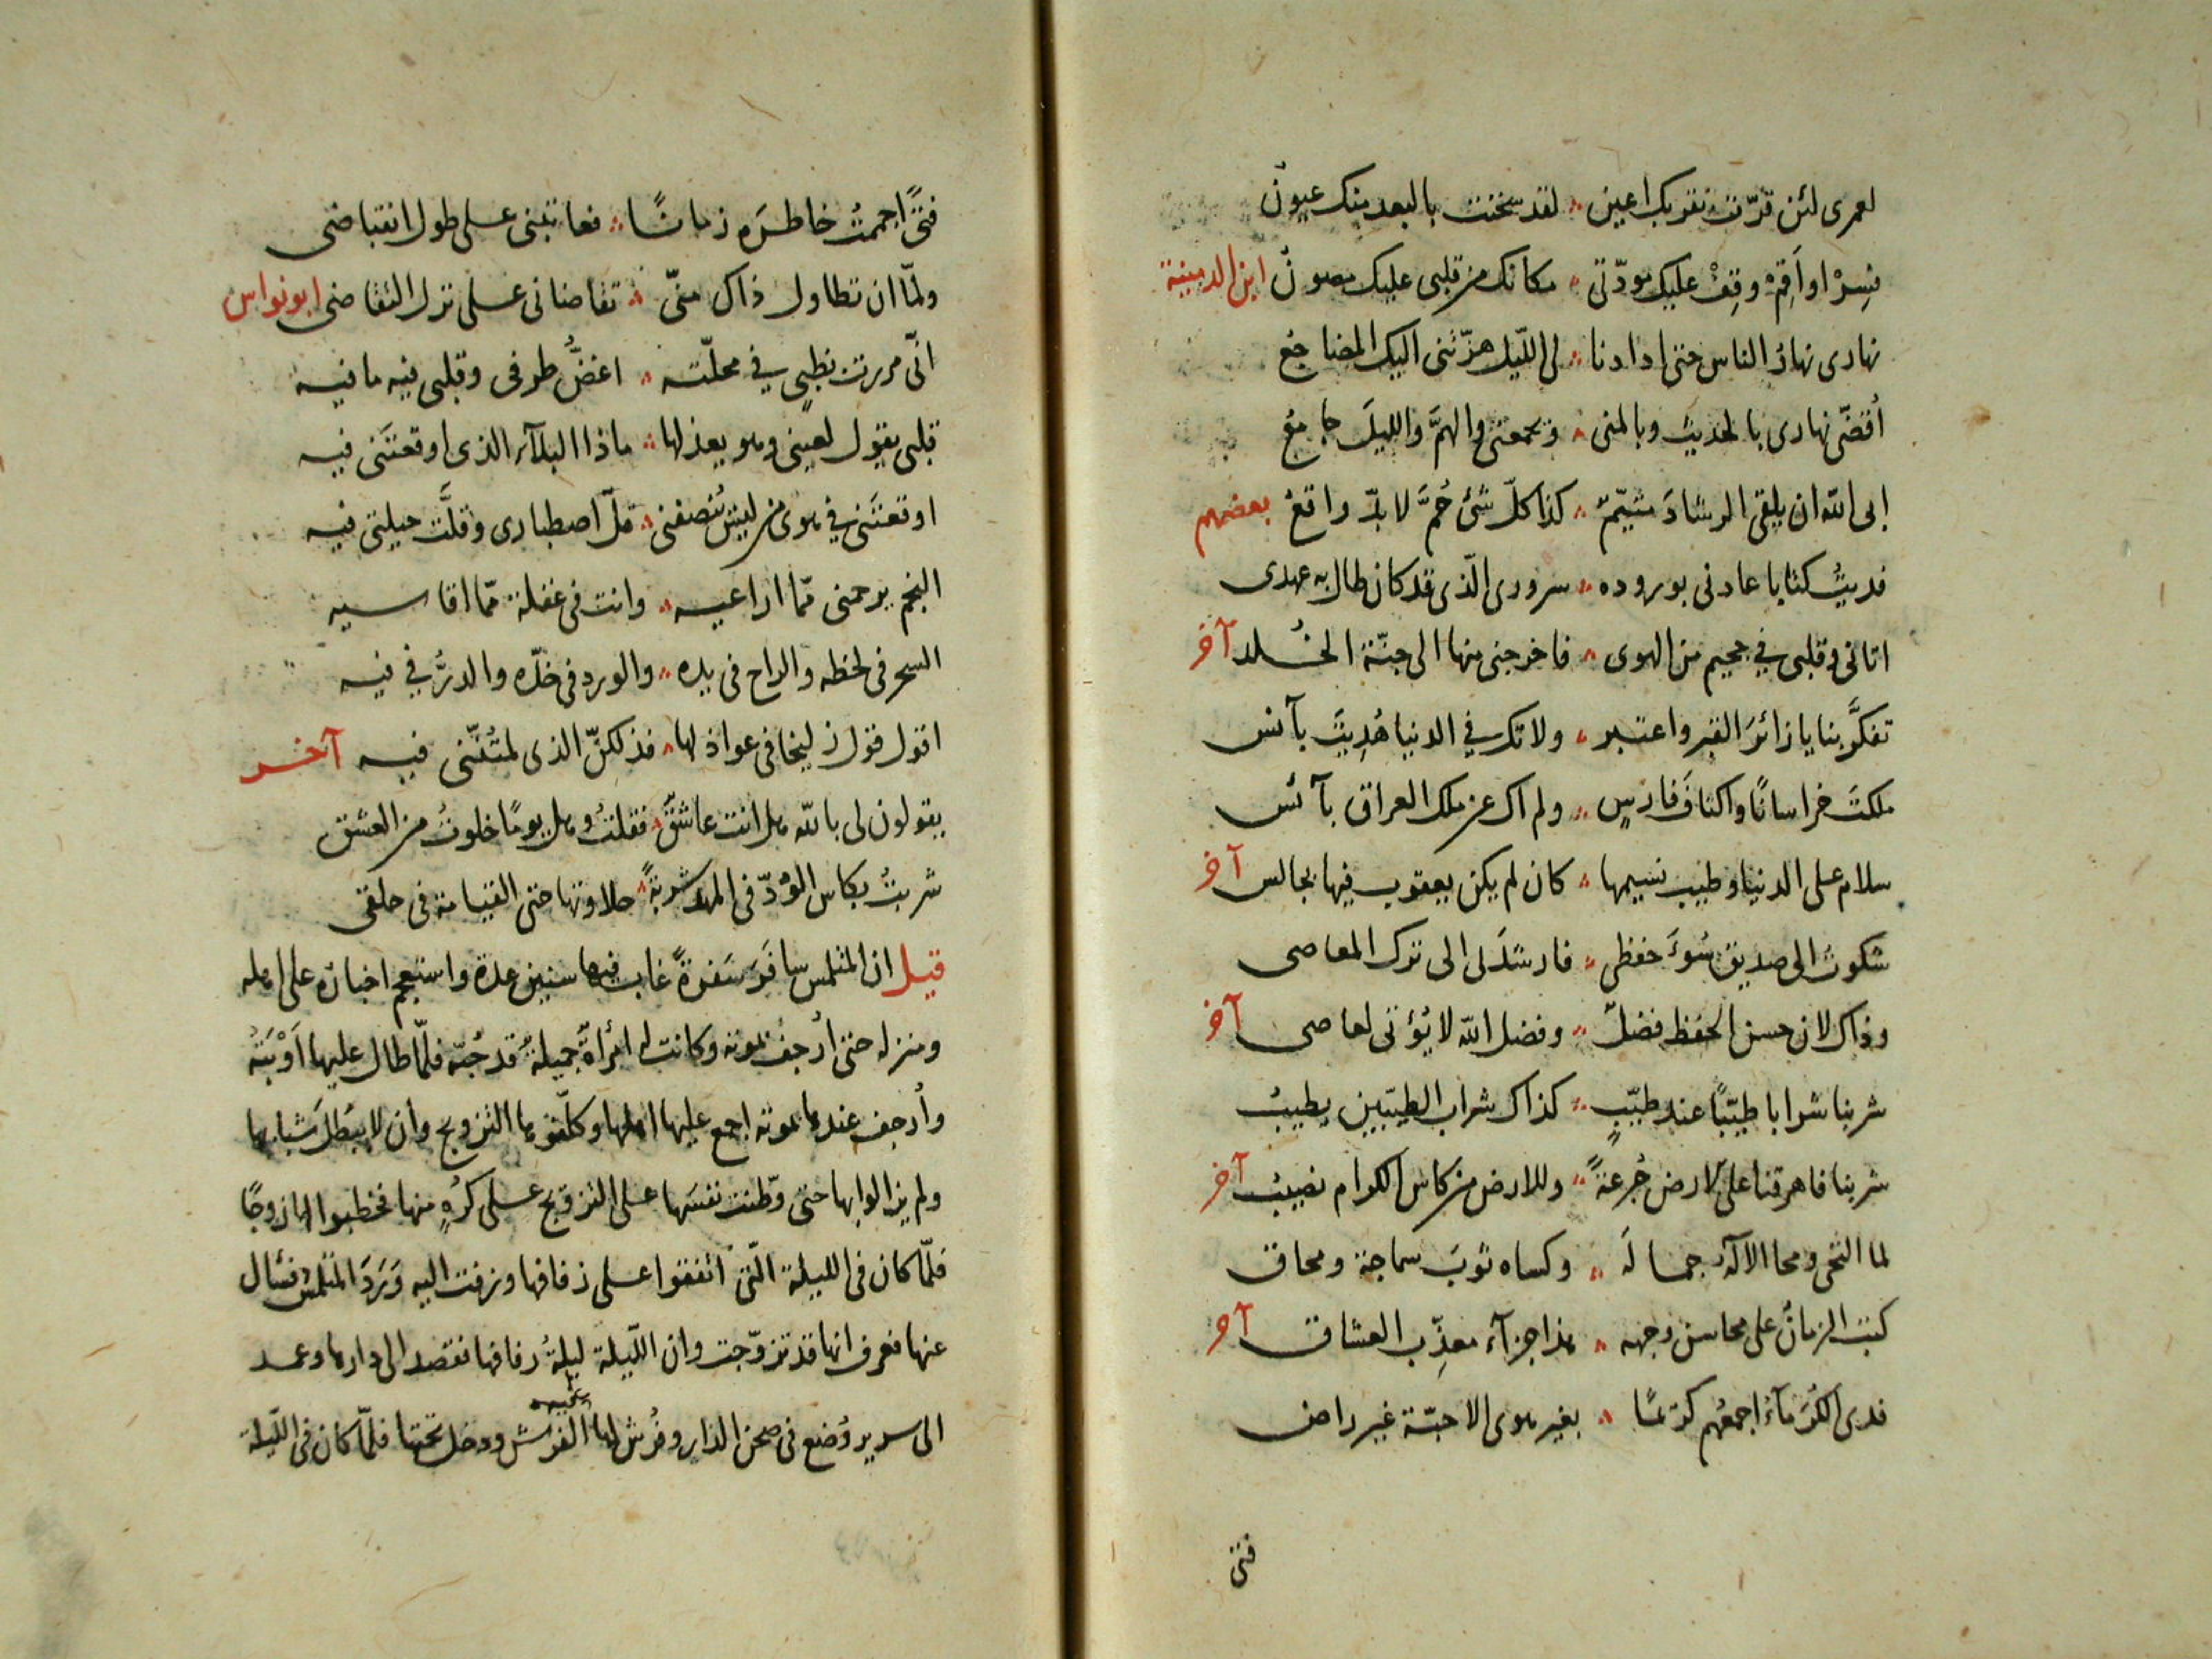 لعمرى لئن قرّت بقربك اعين ∴ لقد سخنت بالبعد منك عيون
فسِرْ او اَقِمْ وقِفْ عليك مودّتى ∴ مكانك من قلبى عليك مصون ابن الدمينة
نهارى نهار الناس حتى اذا دنا ∴ لى اللّيل هزّتنى اليك المضاجع
أقضّى نهارى بالحديث وبالمنى ∴ ويجمعنى والهمَّ والليلَ جامع
ابى الله ان يلقى الرشادَ متيّم ∴ كذا كلّ شئ حُمَّ لا بدّ واقع بعضهم
فديتُ كتابا عادنى بوروده ∴ سرورى الّذى قد كان طال به عهدى
اتانى وقلبى فى جحيم من الهوى ∴ فاخرجنى منها الى جنّة الخُلد آخر
تفكَّر بنا يا زائرَ القبر واعتبر ∴ ولا تك فى الدنيا هُدِيتَ بآنس
ملكتَ خراسانًا واكنافَ فارسٍ ∴ ولم اك عن ملك العراق بآئس
سلام على الدنيا وطيب نسيمها ∴ كان لم يكن يعقوب فيها بجالس آخر
شكوتُ الى صديق سُوءَ حفظى ∴ فارشدَنى الى ترك المعاصى
وذاك لان حسن الحفظ فضلٌ ∴ وفضل الله لا يُؤتى لعاصى آخر
شربنا شرابا طيّبًا عند طيّبٍ ∴ كذاك شراب الطيّبين يطيبُ
شربنا فاهرقنا على الارض جُرعةً ∴ وللارض من كاس الكرام نصيبُ آخر
لما التحى ومحا الالٰه جماله ∴ وكساه ثوبَ سماجة ومحاق
كتب الزمانُ على محاسن وجهه ∴ هذا جزآء معذِّب العشاق آخر
فدى الكُرَمآءِ اجمعُهم كريمًا ∴ بغير هوى الاحبّة غير راض
فتى
فتًى اجممتُ خاطرَه زمانًا ∴ فعاتبنى على طول انقباضى
ولمّا ان تطاول ذاك منّى ∴ تقاضانى على ترك التقاضى ابو نواس
انّى مررت بظبىٍ فى محلّته ∴ اغضُّ طرفى وقلبى فيه ما فيه
قلبى يقول لعينى وهو يعذلها ∴ ماذا البلآء الذى اوقعتَنى فيه
اوقعتَنى فى هوى من ليس يُنصفنى ∴ قلّ اصطبارى وقلَّت حيلتى فيه
النجم يرحمنى ممّا اراعيه ∴ وانت فى غفلة ممّا اقاسيه
السحر فى لحظه والراح فى يده ∴ والورد فى خدّه والدرُّ فى فيه
اقول قول زليخا فى عواذلها ∴ فذلكنّ الذى لمتُنّنى فيه آخر
يقولون لى بالله هل انت عاشقٌ ∴ فقلتُ وهل يومًا خلوتُ من العشق
شربتُ بكاس الوُدّ فى المهد شربةً ∴ حلاوتها حتى القيامة فى حلقى
قيل ان المتلمس سافَرَ سَفرةً غاب فيها سنين عدة واستعجم اخباره على اهله
ومنزله حتى اُرجفَ بموته وكانت له امرأةٌ جميلةٌ قد حُبّه فلمّا طال عليها اَوْبَتُه
واُرجف عندها بموته اجمع عليها اهلها وكلّفوها التزويج وان لا يبطلَ شبابها
ولم يزالوا بها حتى وطّنت نفسَها على التزويج على كُرْهٍ منها فخطبوا لها زوجًا
فلمّا كان فى الليلة الّتى اتفقوا على زفافها وزفت اليه وَرَدَ المتلمّسُ فسُال
عنها فعرف انها قد تزوّجت وان اللّيلة ليلةُ زفافها فقصد الى دارها وعمد
الى سرير وُضع فى صحن الدار وفُرش لها الفرش ودخل تحتها فلمّا كان فى اللّيلة